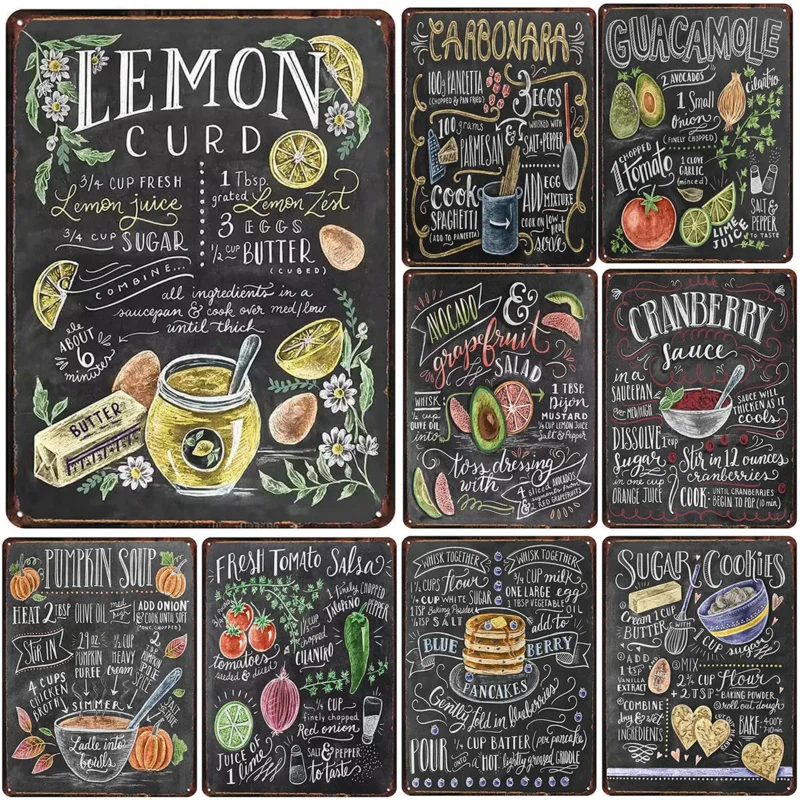 LEMON
CURD
3/4 CUP FRESH
Lemon juice
3/4 CUP SUGAR
1 Tbsp.
grated Lemon Zest
3 EGGS
1/2 CUP BUTTER
(CUBED)
COMBINE...
all ingredients in a
saucepan & cook over med/low
until thick
ABOUT
6
minutes
BUTTER
CARBONARA
100g PANCETTA
(CHOPPED & PAN FRIED)
3 EGGS
WHISKED WITH
SALT + PEPPER
100 grams
PARMESAN
&
COOK
SPAGHETTI
(ADD TO PANCETTA)
ADD EGG
MIXTURE
COOK ON low heat
serve
GUACAMOLE
2 AVOCADOS
1 Small
Onion
(FINELY CHOPPED)
cilantro
1 CHOPPED
Tomato
1 CLOVE
GARLIC
(minced)
LIME
JUICE
SALT &
PEPPER
TO TASTE
AVOCADO
&
grapefruit
SALAD
WHISK
1/2 cup
OLIVE OIL
into
1 TBSP.
Dijon
MUSTARD
1/4 CUP LEMON JUICE
Salt & Pepper
toss dressing
with
4 sliced AVOCADOS
2 RED GRAPEFRUITS
CRANBERRY
Sauce
in a
SAUCEPAN
over MED/HIGH
SAUCE WILL
THICKEN AS IT
cools
DISSOLVE
1 cup
Sugar
in one cup
ORANGE JUICE
Stir in 12 ounces
cranberries
COOK UNTIL CRANBERRIES
BEGIN TO POP (10 min)
PUMPKIN SOUP
HEAT 2 TBSP OLIVE OIL med high
ADD ONION
& COOK UNTIL SOFT
(ONE, CHOPPED)
STIR IN
29 oz
PUMPKIN
PUREE
1/2 CUP
HEAVY
Cream
4 CUPS
CHICKEN
BROTH
SIMMER
Ladle into
bowls
FRESH TOMATO SALSA
1 finely CHOPPED
JALAPENO PEPPER
3/4 lb
tomatoes
seeded & diced
1/2 cup
chopped
CILANTRO
1/4 CUP
finely chopped
Red onion
JUICE OF
1 lime
SALT & PEPPER
to taste
WHISK TOGETHER
1 1/4 CUPS flour
1/4 CUP WHITE SUGAR
1 TSP Baking Powder
1/4 TSP SALT
WHISK TOGETHER
3/4 CUP milk
ONE LARGE egg
1 TBSP VEGETABLE OIL
add to
BLUE BERRY
PANCAKES
Gently fold in blueberries
POUR 1/4 CUP BATTER (per pancake)
ONTO a HOT lightly greased GRIDDLE
SUGAR COOKIES
① Cream 1 CUP
BUTTER
1 CUP sugar
② ADD
1 tsp
VANILLA
EXTRACT
③ MIX
2 3/4 CUP Flour
+ 2 TSP BAKING POWDER
④ COMBINE
dry & wet
INGREDIENTS
⑤ roll out dough
CUT OUT
BAKE
400°F
7-10 min.